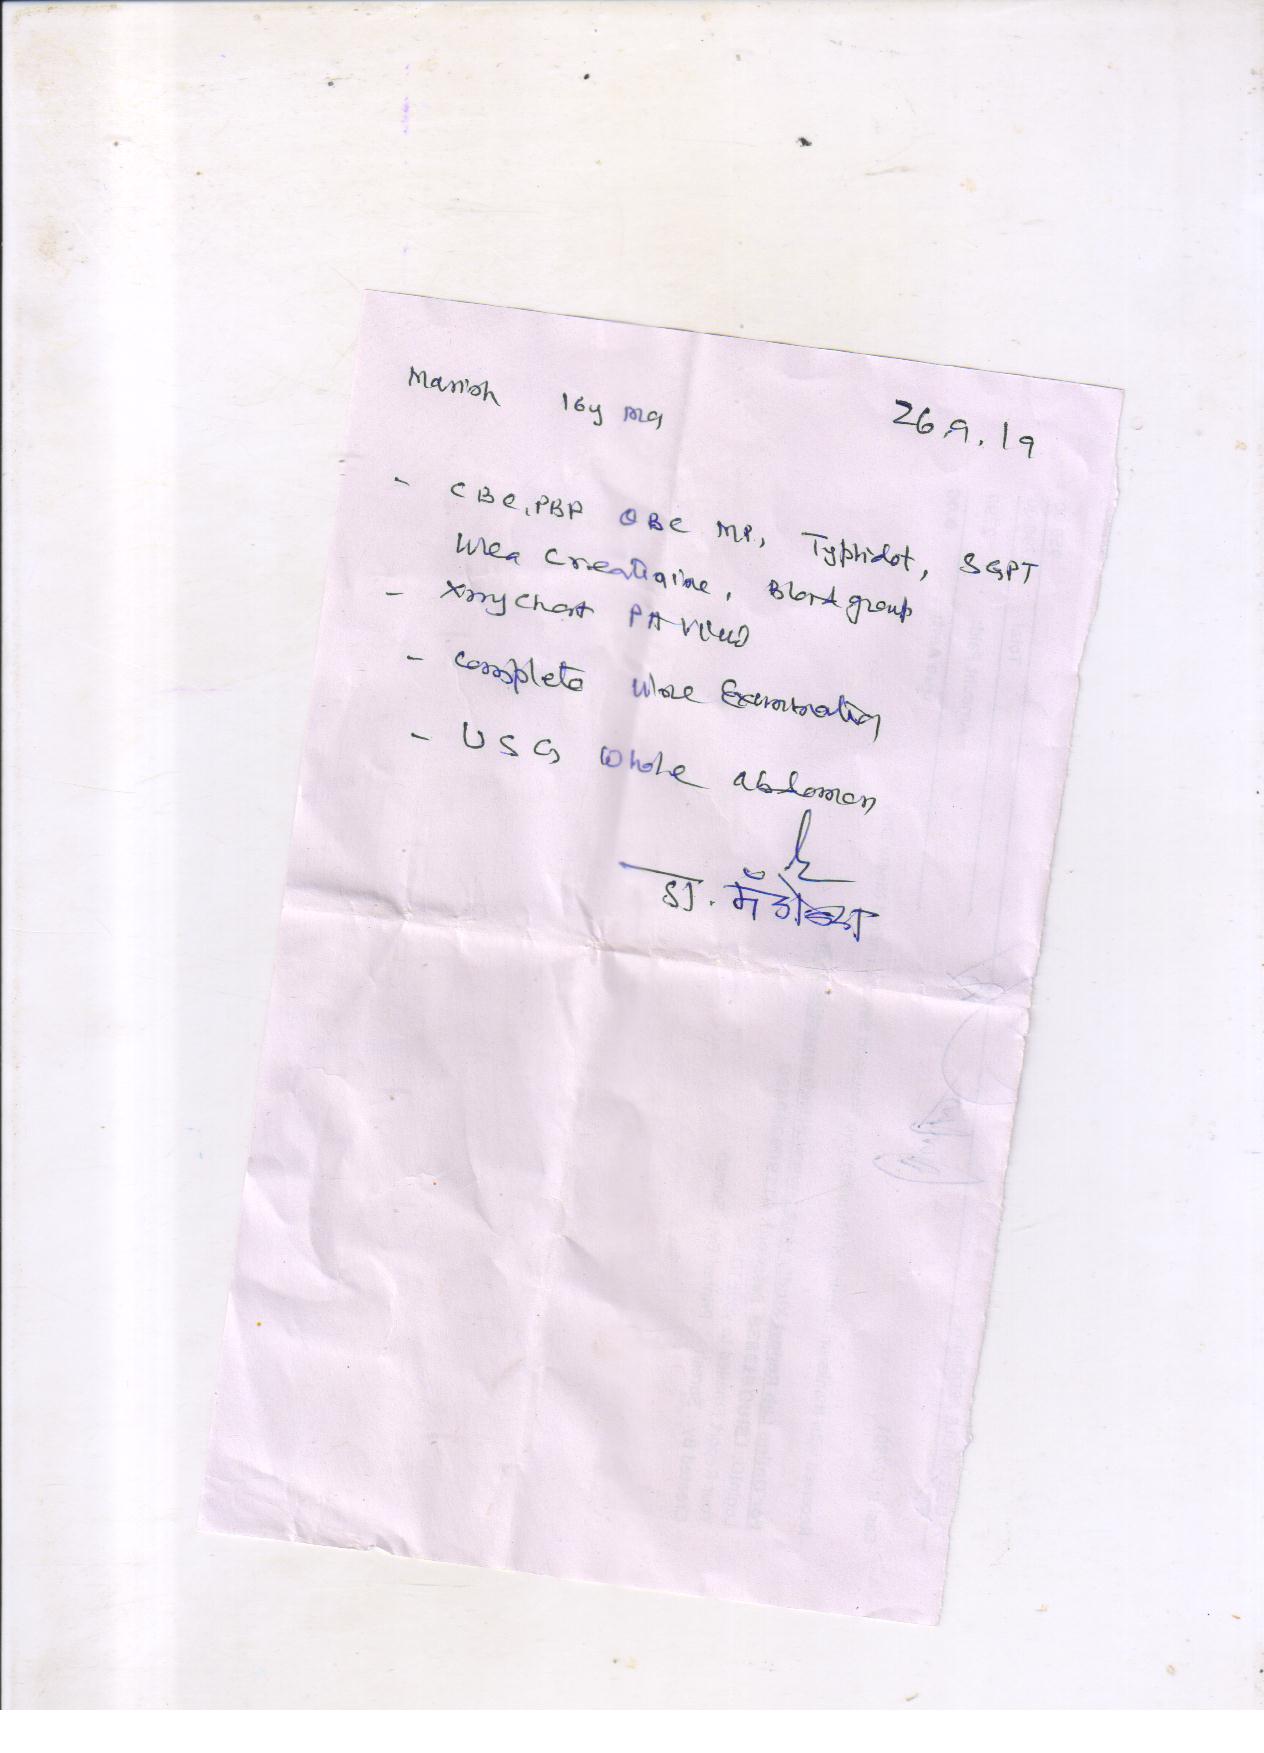 Manish 16y 26.9.19
- CBC, PBF QBC MP, Typhidot, SGPT
Urea Creatinine, Blood group
- Xray Chest PA View
- Complete Urine Examination
- USG Whole abdomen
डा.